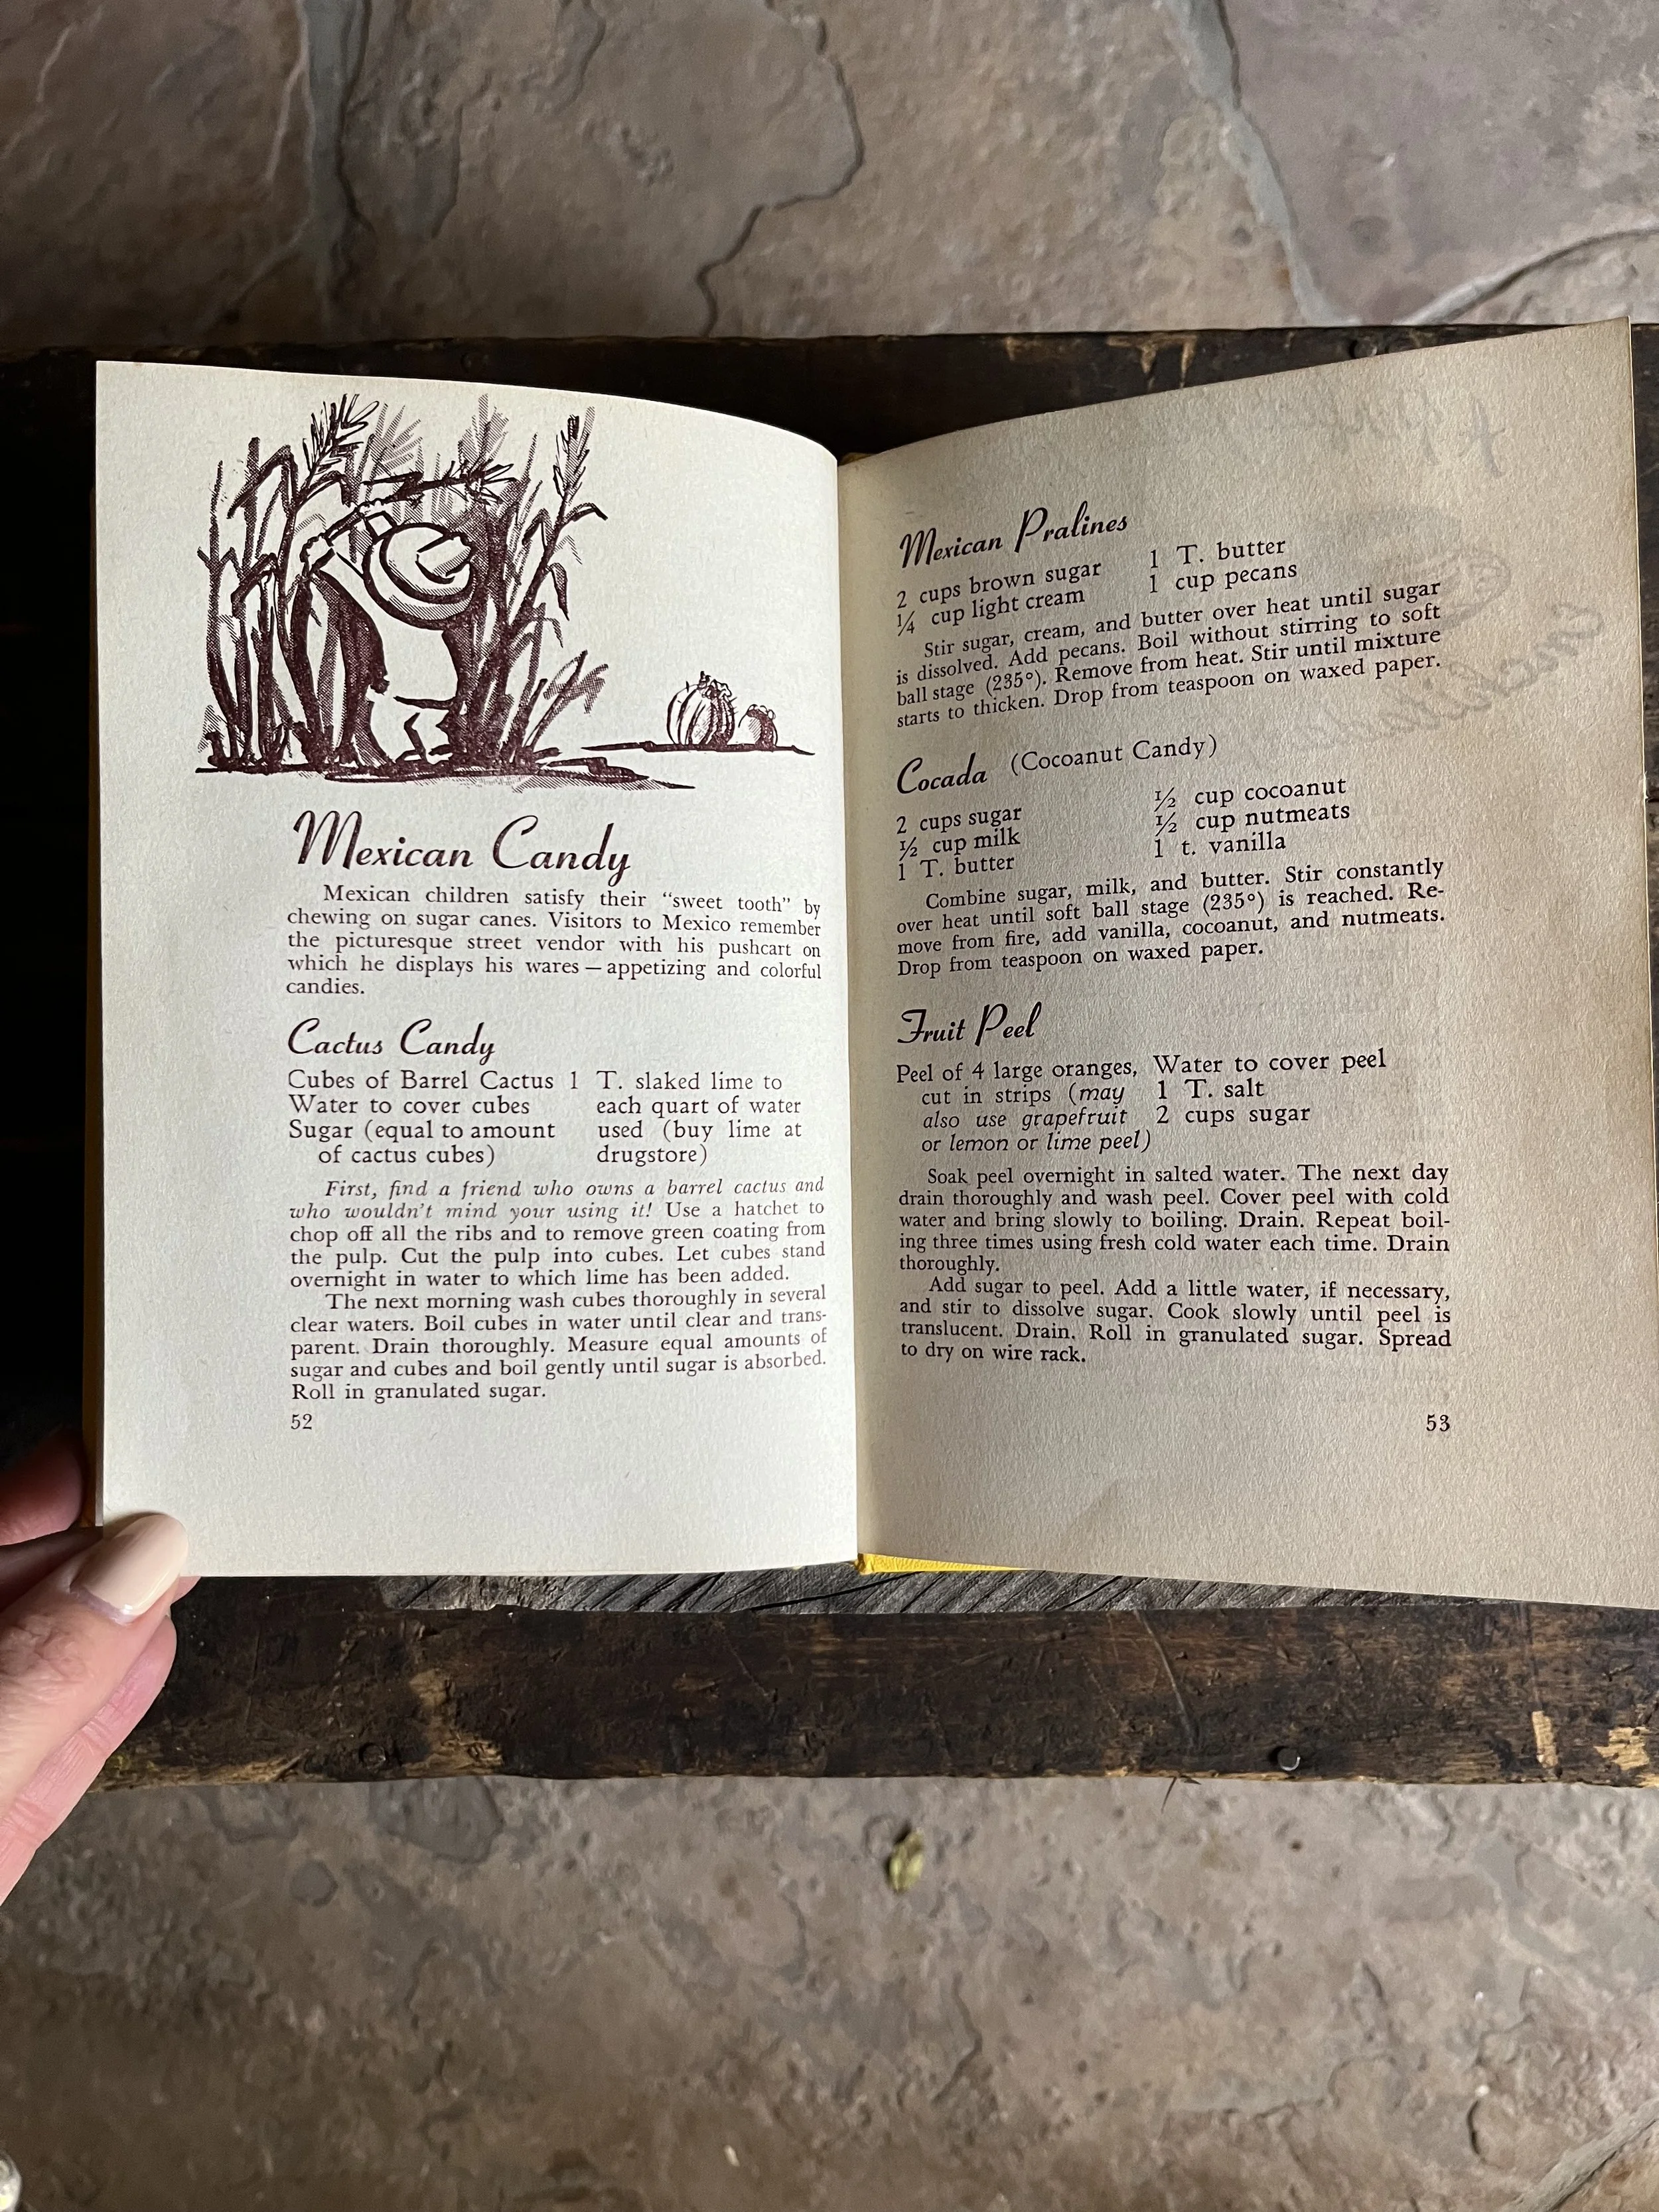 Mexican Candy
Mexican children satisfy their “sweet tooth” by
chewing on sugar canes. Visitors to Mexico remember
the picturesque street vendor with his pushcart on
which he displays his wares — appetizing and colorful
candies.
Cactus Candy
Cubes of Barrel Cactus
Water to cover cubes
Sugar (equal to amount
of cactus cubes)
1 T. slaked lime to
each quart of water
used (buy lime at
drugstore)
First, find a friend who owns a barrel cactus and
who wouldn't mind your using it! Use a hatchet to
chop off all the ribs and to remove green coating from
the pulp. Cut the pulp into cubes. Let cubes stand
overnight in water to which lime has been added.
The next morning wash cubes thoroughly in several
clear waters. Boil cubes in water until clear and trans-
parent. Drain thoroughly. Measure equal amounts of
sugar and cubes and boil gently until sugar is absorbed.
Roll in granulated sugar.
52
Mexican Pralines
2 cups brown sugar
¼ cup light cream
1 T. butter
1 cup pecans
Stir sugar, cream, and butter over heat until sugar
is dissolved. Add pecans. Boil without stirring to soft
ball stage (235°). Remove from heat. Stir until mixture
starts to thicken. Drop from teaspoon on waxed paper.
Cocada (Cocoanut Candy)
2 cups sugar
½ cup milk
1 T. butter
½ cup cocoanut
½ cup nutmeats
1 t. vanilla
Combine sugar, milk, and butter. Stir constantly
over heat until soft ball stage (235°) is reached. Re-
move from fire, add vanilla, cocoanut, and nutmeats.
Drop from teaspoon on waxed paper.
Fruit Peel
Peel of 4 large oranges,
cut in strips (may
also use grapefruit
or lemon or lime peel)
Water to cover peel
1 T. salt
2 cups sugar
Soak peel overnight in salted water. The next day
drain thoroughly and wash peel. Cover peel with cold
water and bring slowly to boiling. Drain. Repeat boil-
ing three times using fresh cold water each time. Drain
thoroughly.
Add sugar to peel. Add a little water, if necessary,
and stir to dissolve sugar. Cook slowly until peel is
translucent. Drain. Roll in granulated sugar. Spread
to dry on wire rack.
53